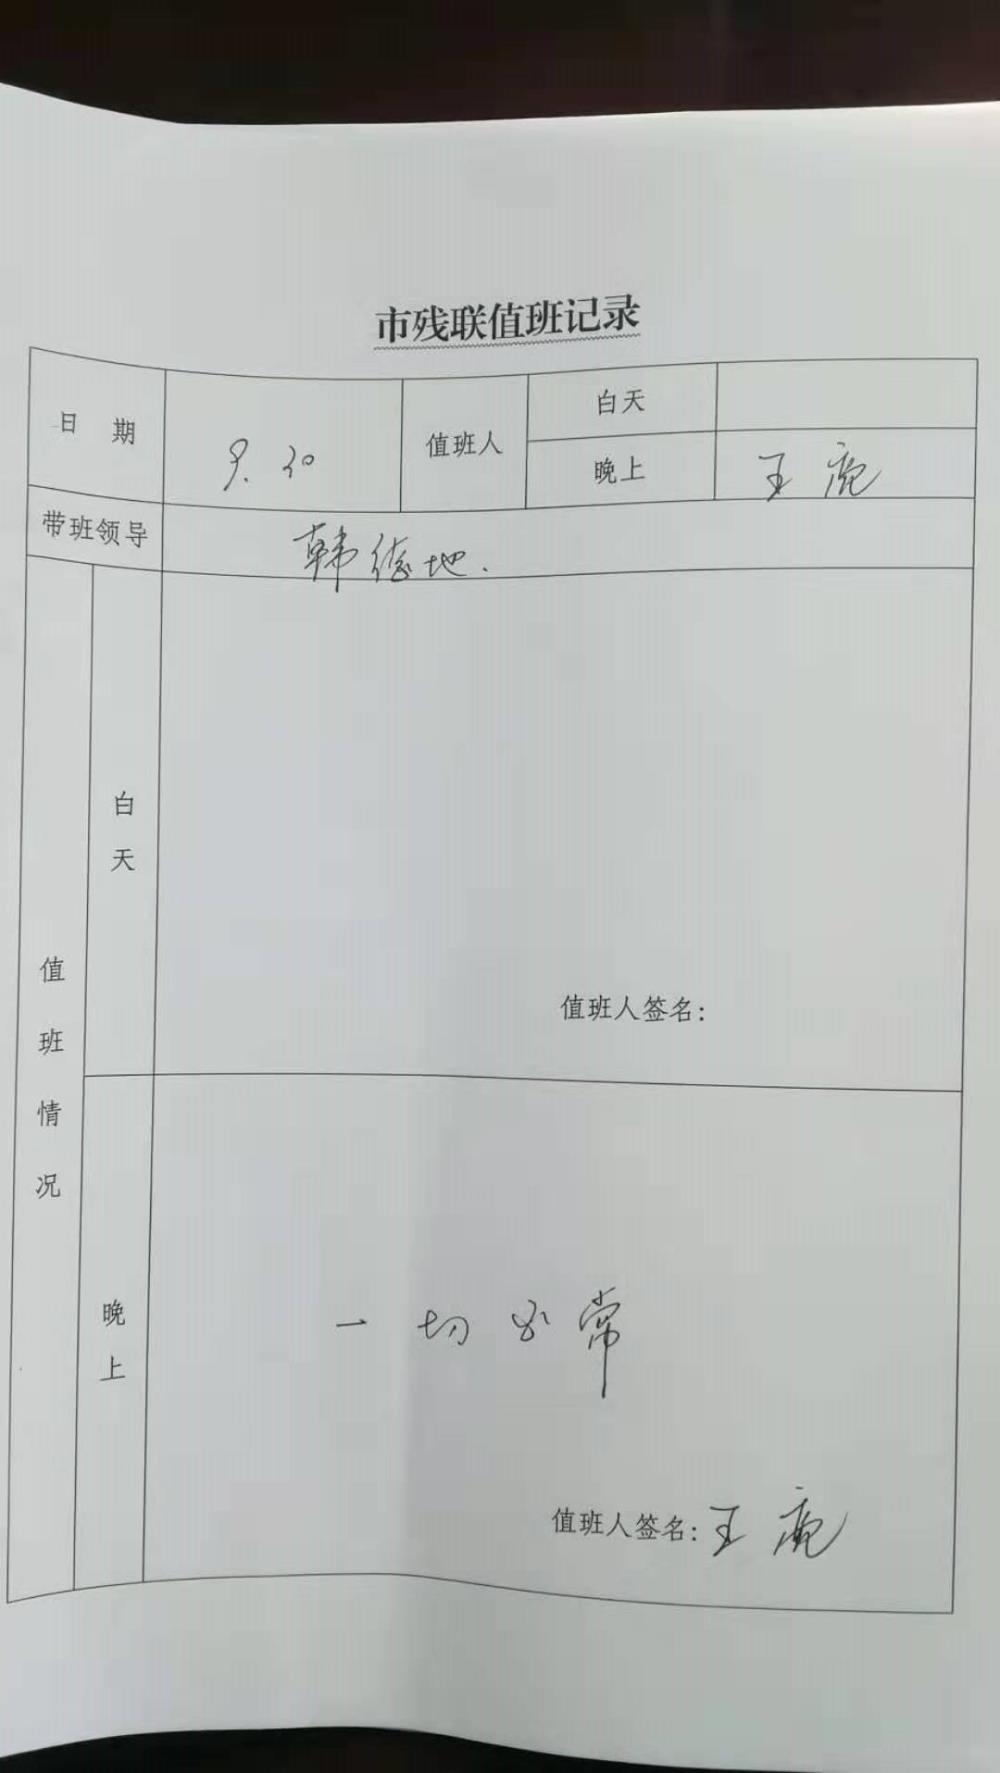 市残联值班记录
日 期 9.30 值班人 白天
晚上 王
带班领导 韩德地.
值班情况
白天
值班人签名:
晚上
一切正常
值班人签名: 王